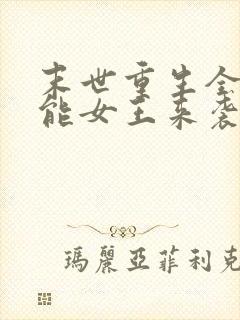 末世重生全
能女王来袭
瑪麗亞菲利克